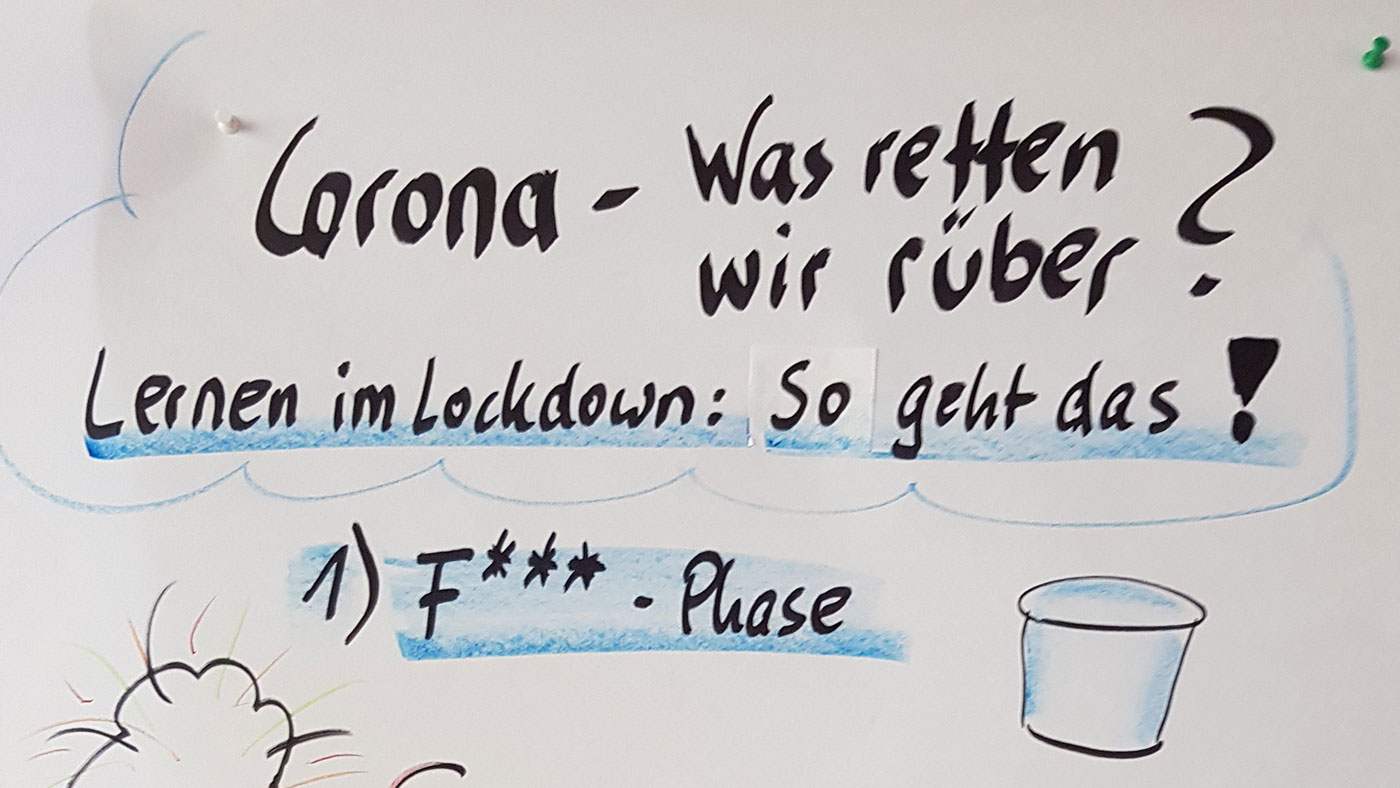 Corona - Was retten
wir rüber?
Lernen im Lockdown: So geht das!
1) F*** - Phase